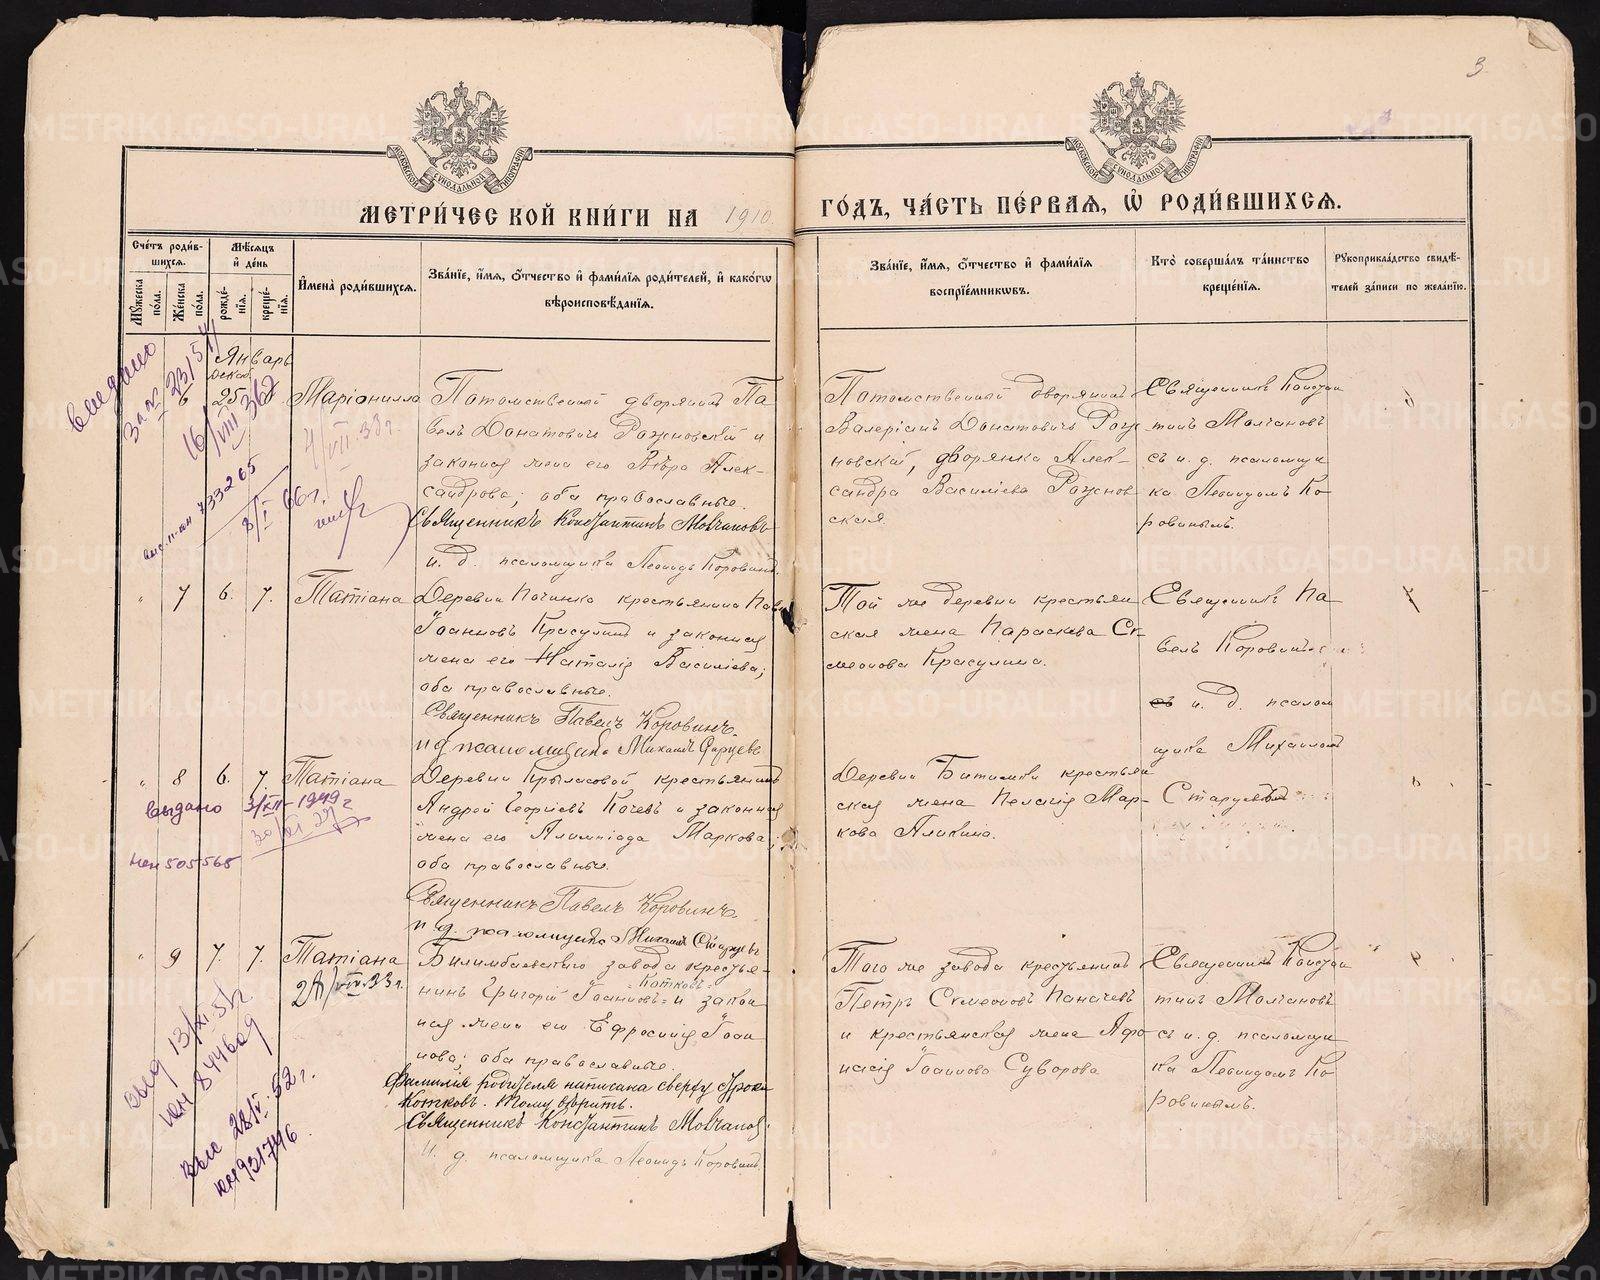 3
МОСКОВСКОЙ СУНОДАЛЬНОЙ ТИПОГРАФІИ
МОСКОВСКОЙ СУНОДАЛЬНОЙ ТИПОГРАФІИ
МЕТРИ́ЧЕСКОЙ КНИ́ГИ НА 1910
ГО́ДЪ, ЧА́СТЬ ПЕ́РВАЯ, Ѡ҆ РОДИ́ВШИХСЯ.
Сче́тъ роди́вшихся.
Мꙋ́жеска по́ла.
Же́нска по́ла.
Мѣ́сяцъ и҆ де́нь
рожде́нїя.
креще́нїя.
И҆мена̀ роди́вшихся.
Зва́нїе, и҆́мя, ѻ҆́тчество и҆ фами́лїя роди́телей, и҆ како́гѡ вѣроисповѣ́данїя.
Зва́нїе, и҆́мя, ѻ҆́тчество и҆ фами́лїя воспрїе́мникѡвъ.
Кто̀ соверша́лъ та́инство креще́нїя.
Рꙋкоприкла́дство свидѣ́телей за́писи по жела́нїю.
Январь
Декаб.
6 25
Маріонилла
Потомственный дворянинъ Па
велъ Донатовичъ Рожновскій и
законная жена его Вѣра Алек-
сандрова; оба православные.
Священникъ Константинъ Молчановъ
и. д. псаломщика Леонидъ Коровинъ.
Потомственный дворянинъ
Валеріанъ Донатовичъ Рож
новскій, дворянка Алек-
сандра Василіева Рожнов
ская.
Священникъ Констан
тинъ Молчановъ
съ и. д. псаломщи
ка Леонидомъ Ко-
ровинымъ.
выдано
за № 23/54
16/VIII 36
4/VII.33г.
733265
8/I 66г.
" 7 6. 7.
Татіана
Деревни Починка крестьянинъ Павел
Іоанновъ Красулинъ и законная
жена его Наталія Василіева;
оба православные.
Священникъ Павелъ Коровинъ.
и д псаломщика Михаилъ Старцевъ
Той же деревни крестьян
ская жена Параскева Си-
меонова Красулина.
Священникъ Па
велъ Коровинъ
съ и. д. псалом
щика Михаиломъ
Старцевымъ
" 8 6. 7.
Татіана
Деревни Крыласовой крестьянинъ
Андрей Георгіевъ Кочевъ и законная
жена его Алимпіада Маркова;
оба православные.
Священникъ Павелъ Коровинъ.
и д. псаломщика Михаилъ Старцевъ
Деревни Битимки крестьян
ская жена Пелагія Мар-
кова Аликина.
выдано 3/XII-1949г
505565
" 9 7. 7.
Татіана
Билимбаевскаго завода крестья-
=Котковъ=
нинъ Григорій Іоанновъ и закон
ная жена его Ефросинія Іоан
нова; оба православные.
Фамилія родителя написана сверху строки
Котковъ. Тому вѣрить.
Священникъ Константинъ Молчановъ.
И. д. псаломщика Леонидъ Коровинъ.
Того же завода крестьянинъ
Петръ Симеоновъ Паначевъ
и крестьянская жена Афа
насія Іоаннова Суворова
Священникъ Констан
тинъ Молчановъ
съ и. д. псаломщи
ка Леонидомъ Ко-
ровинымъ.
24/VIII.33г.
выд 13/XI-51г
844609
выс 28/IV.52г.
931746
METRIKI.GASO-URAL.RU